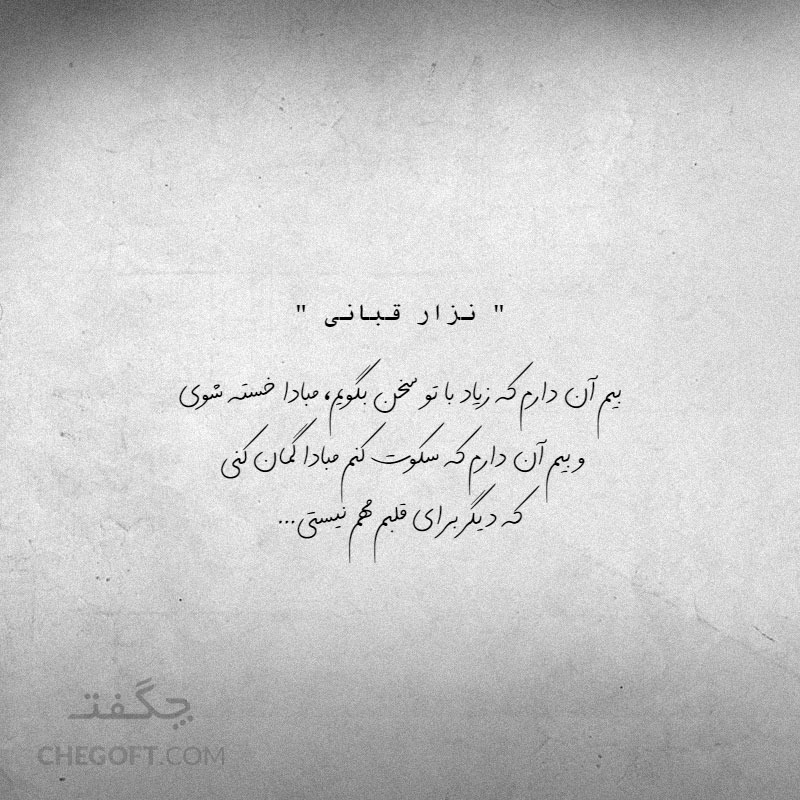 " نزار قبانی "
بیم آن دارم که زیاد با تو سخن بگویم، مبادا خسته شوی
و بیم آن دارم که سکوت کنم مبادا گمان کنی
که دیگر برای قلبم مهم نیستی...
چگفت
CHEGOFT.COM